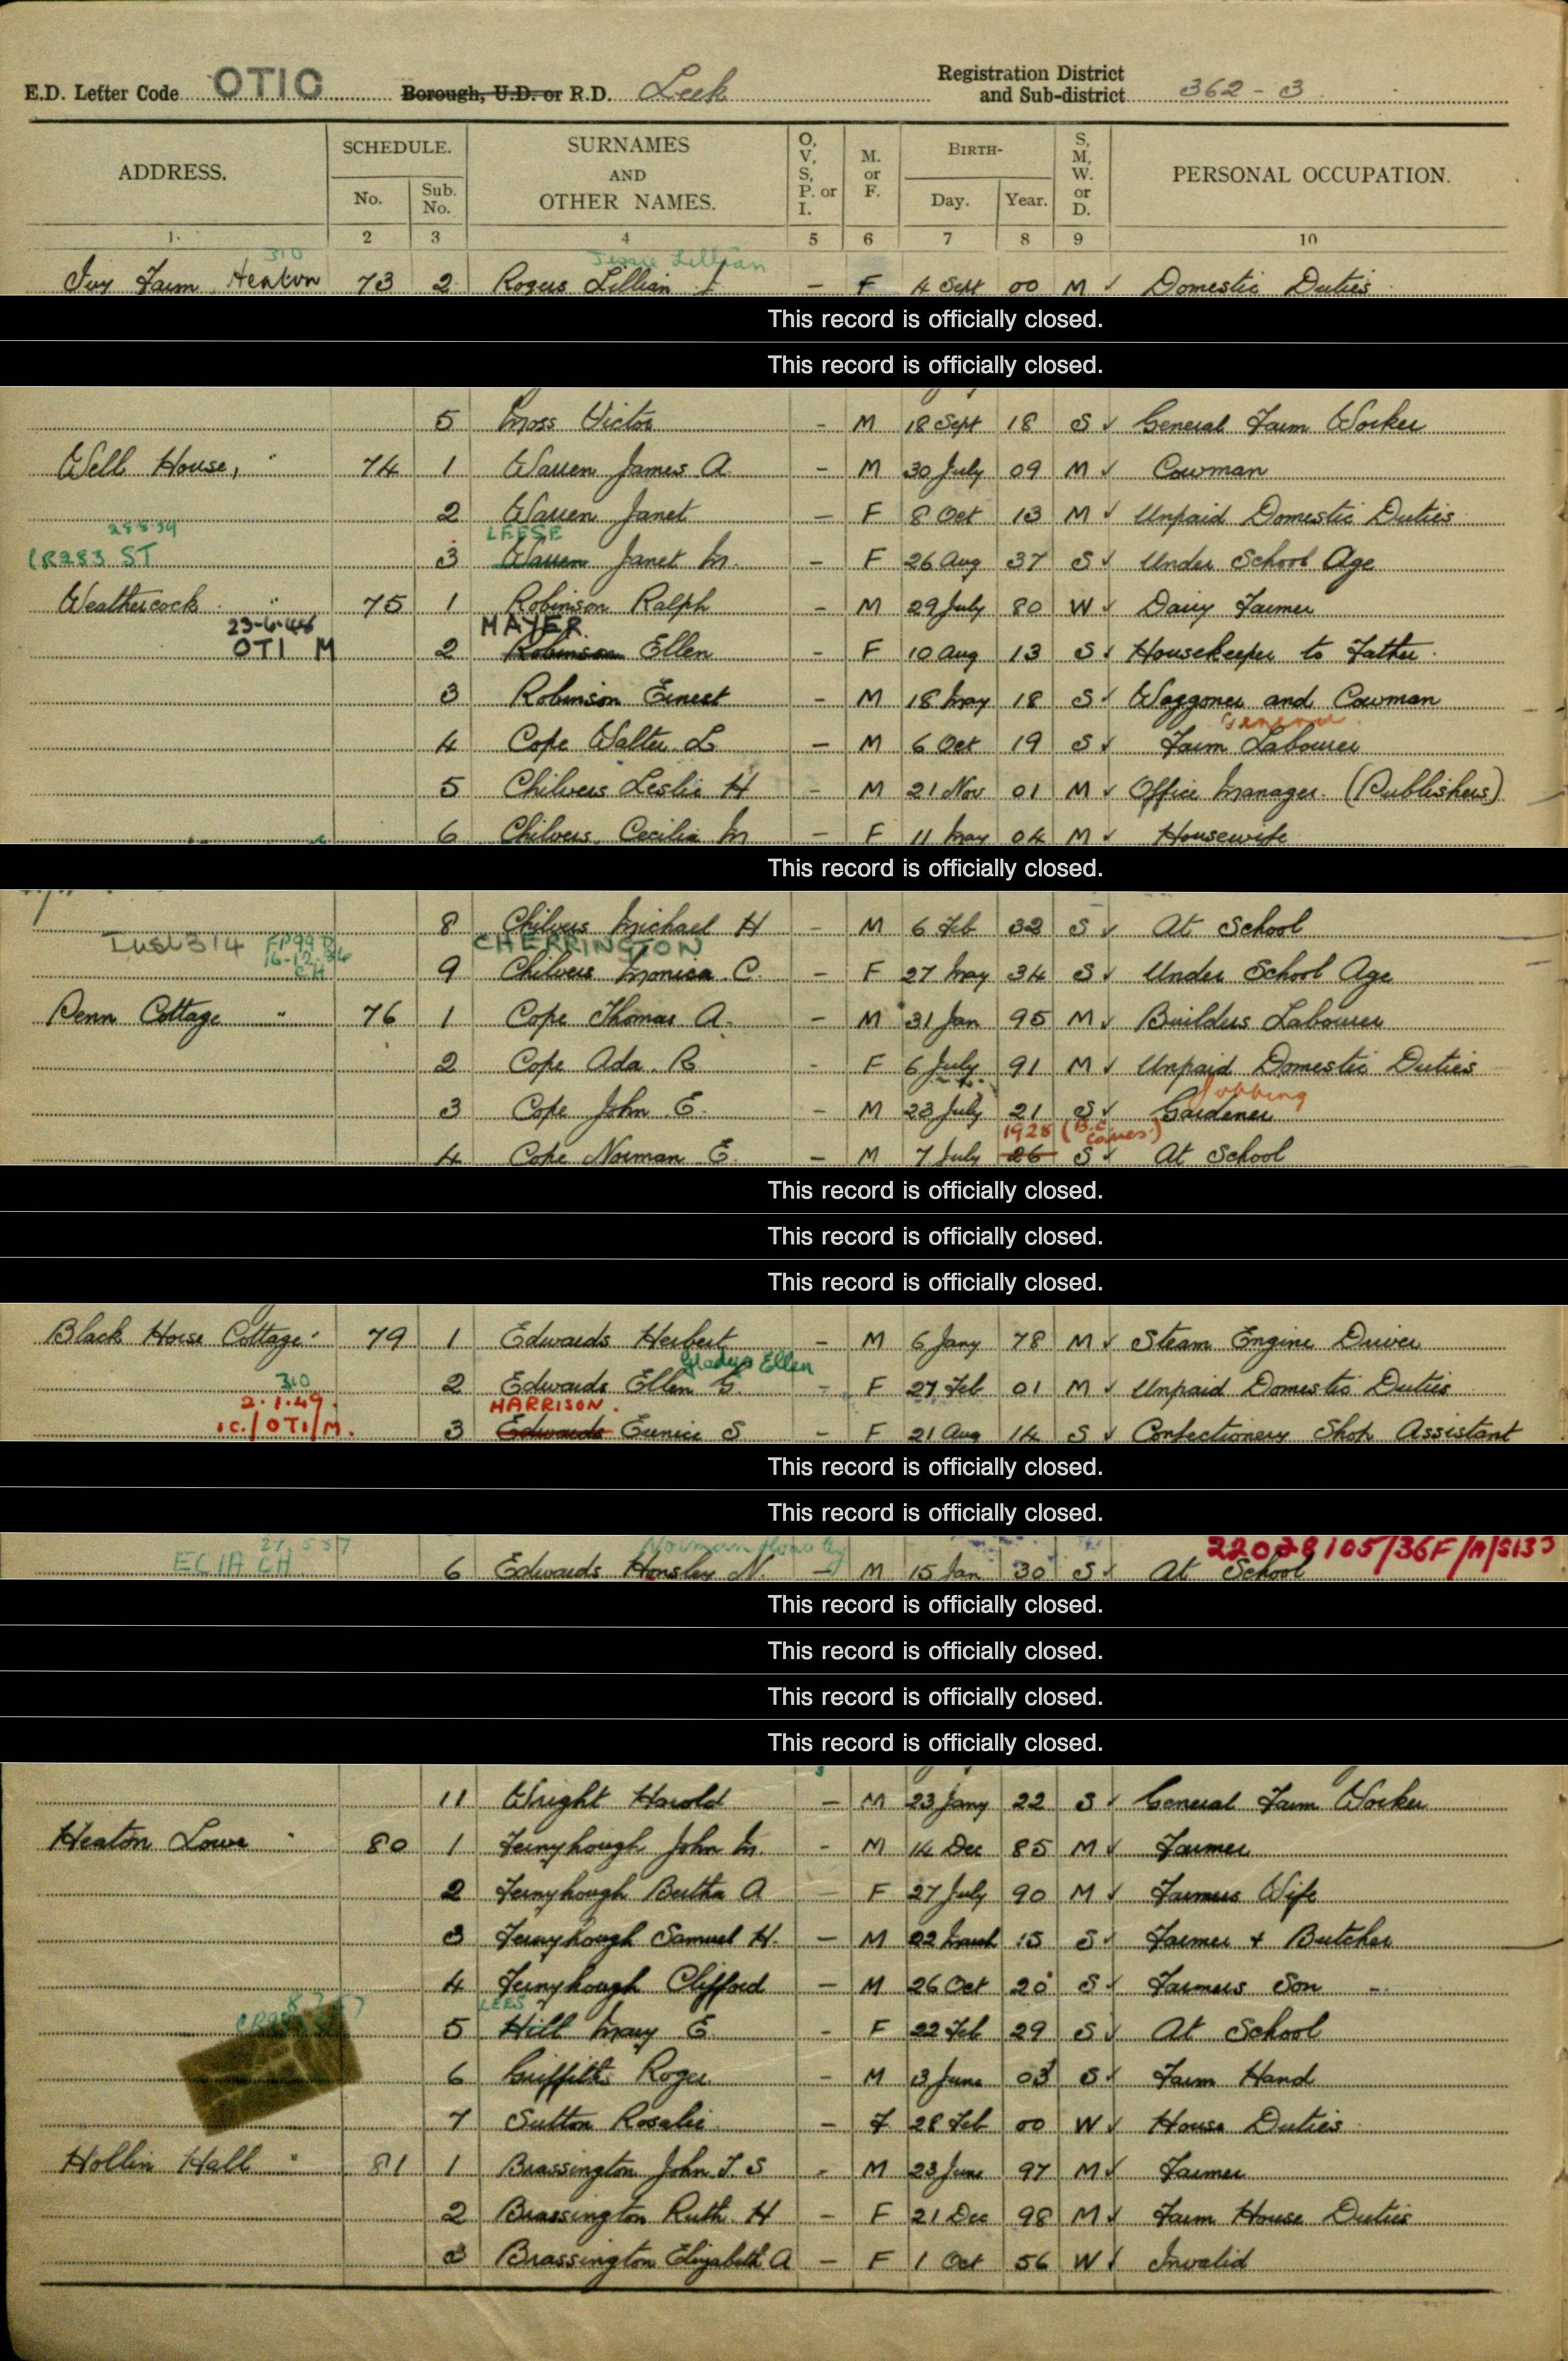 E.D. Letter Code OTIC Borough, U.D. or R.D. Leek Registration District and Sub-district 362 - 3
ADDRESS. SCHEDULE. No. Sub. No. SURNAMES AND OTHER NAMES. O, V, S, P. or I. M. or F. BIRTH- Day. Year. S, M, W. or D. PERSONAL OCCUPATION.
1. 2 3 4 5 6 7 8 9 10
310 Jessie Lillian
Ivy Farm Heaton 73 2 Rogers Lillian J - F 4 Sept 00 M ✓ Domestic Duties
This record is officially closed.
This record is officially closed.
5 Moss Victor - M 18 Sept 18 S ✓ General Farm Worker
Well House, " 74 1 Warren James A. - M 30 July 09 M ✓ Cowman
2 Warren Janet - F 8 Oct 13 M ✓ Unpaid Domestic Duties
LEESE
3 Warren Janet M. - F 26 Aug 37 S ✓ Under School Age
Weathercock " 75 1 Robinson Ralph - M 29 July 80 W ✓ Dairy Farmer
23-6-46 MAYER
OTI M 2 Robinson Ellen - F 10 Aug 13 S ✓ Housekeeper to Father.
3 Robinson Ernest - M 18 May 18 S ✓ Waggoner and Cowman
General
4 Cope Walter L - M 6 Oct 19 S ✓ Farm Labourer
5 Chilvers Leslie H - M 21 Nov 01 M ✓ Office Manager. (Publishers)
6 Chilvers Cecilia M - F 11 May 04 M ✓ Housewife
This record is officially closed.
8 Chilvers Michael H - M 6 Feb 32 S ✓ At School
CHERRINGTON
9 Chilvers Monica C. - F 27 May 34 S ✓ Under School Age
Penn Cottage " 76 1 Cope Thomas A. - M 31 Jan 95 M ✓ Builders Labourer
2 Cope Ada B - F 6 July 91 M ✓ Unpaid Domestic Duties
Jobbing
3 Cope John E. - M 23 July 21 S ✓ Gardener
1928 (B.C.
4 Cope Norman E. - M 7 July 26 S ✓ At School
This record is officially closed.
This record is officially closed.
This record is officially closed.
Black Horse Cottage " 79 1 Edwards Herbert - M 6 Jany 78 M ✓ Steam Engine Driver
310 Gladys Ellen
2 Edwards Ellen G. - F 27 Feb 01 M ✓ Unpaid Domestic Duties
2.1.49. HARRISON.
1C./OTI/M. 3 Edwards Eunice S - F 21 Aug 14 S ✓ Confectionery Shop Assistant
This record is officially closed.
This record is officially closed.
6 Edwards Honsley N. - M 15 Jan 30 S ✓ At School
This record is officially closed.
This record is officially closed.
This record is officially closed.
This record is officially closed.
11 Wright Harold - M 23 Jany 22 S ✓ General Farm Worker
Heaton Lowe " 80 1 Fernyhough John M. - M 14 Dec 85 M ✓ Farmer
2 Fernyhough Bertha A - F 27 July 90 M ✓ Farmers Wife
3 Fernyhough Samuel H. - M 22 March 15 S ✓ Farmer + Butcher
4 Fernyhough Clifford - M 26 Oct 20 S ✓ Farmers Son
LEES
5 Hill Mary E - F 22 Feb 29 S ✓ At School
6 Griffiths Roger - M 13 June 03 S ✓ Farm Hand
7 Sutton Rosalie - F 28 Feb 00 W ✓ House Duties
Hollin Hall " 81 1 Brassington John T. S - M 23 June 97 M ✓ Farmer
2 Brassington Ruth H - F 21 Dec 98 M ✓ Farm House Duties
3 Brassington Elizabeth A - F 1 Oct 56 W ✓ Invalid